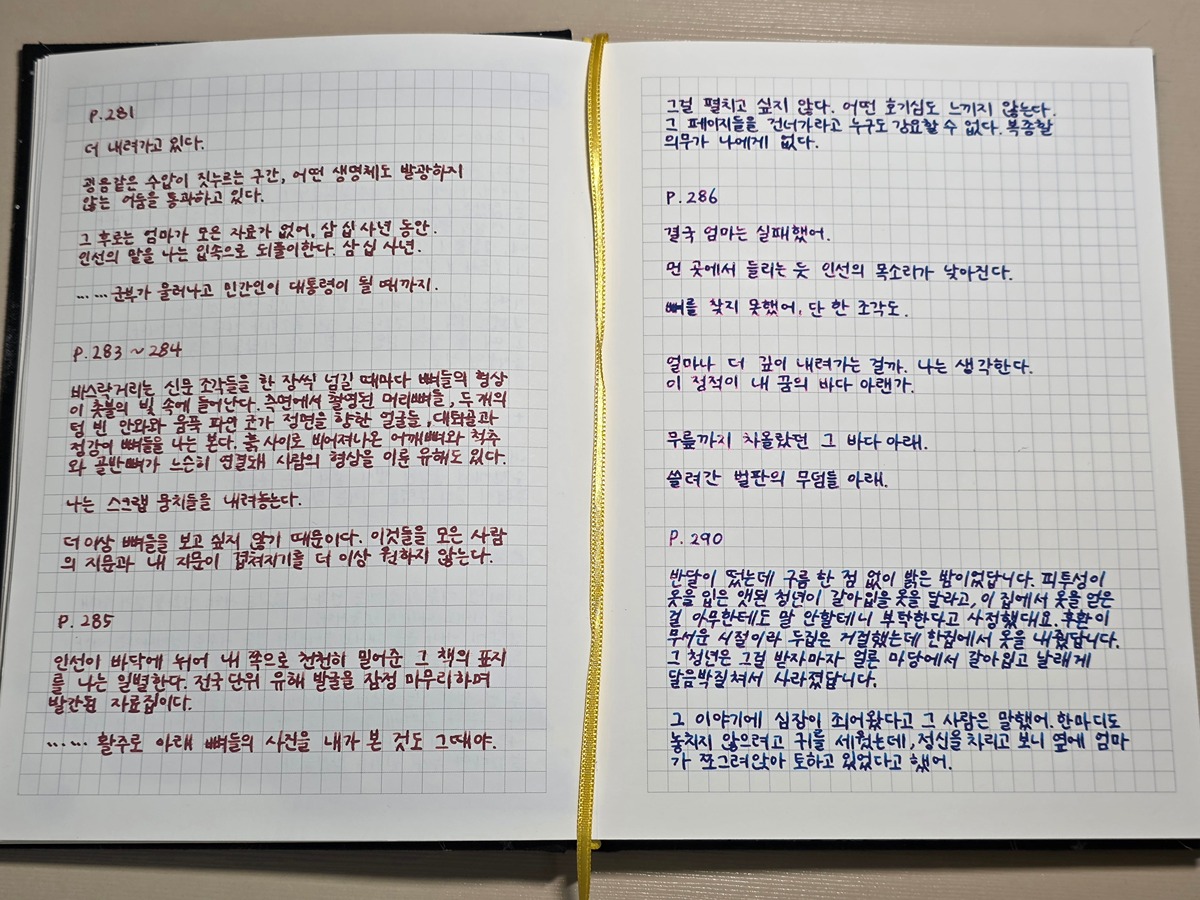 P.281
더 내려가고 있다.
굉음같은 수압이 짓누르는 구간, 어떤 생명체도 발광하지
않는 어둠을 통과하고 있다.
그 후로는 엄마가 모은 자료가 없어, 삼십사년 동안.
인선의 말을 나는 입속으로 되풀이한다. 삼십사년.
…… 군부가 물러나고 민간인이 대통령이 될 때까지.
P.283 ~ 284
바스락거리는 신문 조각들을 한 장씩 넘길 때마다 뼈들의 형상
이 촛불의 빛 속에 드러난다. 측면에서 촬영된 머리뼈들, 두 개의
텅 빈 안와와 움푹 파인 코가 정면을 향한 얼굴들, 대퇴골과
정강이 뼈들을 나는 본다. 흙 사이로 비어져나온 어깨뼈와 척추
와 골반뼈가 느슨히 연결돼 사람의 형상을 이룬 유해도 있다.
나는 스크랩 뭉치들을 내려놓는다.
더 이상 뼈들을 보고 싶지 않기 때문이다. 이것들을 모은 사람
의 지문과 내 지문이 겹쳐지기를 더 이상 원하지 않는다.
P.285
인선이 바닥에 뉘어 내 쪽으로 천천히 밀어준 그 책의 표지
를 나는 일별한다. 전국 단위 유해 발굴을 잠정 마무리하며
발간된 자료집이다.
…… 활주로 아래 뼈들의 사진을 내가 본 것도 그때야.
그걸 펼치고 싶지 않다. 어떤 호기심도 느끼지 않는다.
그 페이지들을 건너가라고 누구도 강요할 수 없다. 복종할
의무가 나에게 없다.
P.286
결국 엄마는 실패했어.
먼 곳에서 들리는 듯 인선의 목소리가 낮아진다.
뼈를 찾지 못했어, 단 한 조각도.
얼마나 더 깊이 내려가는 걸까. 나는 생각한다.
이 정적이 내 꿈의 바다 아랜가.
무릎까지 차올랐던 그 바다 아래.
쓸려간 벌판의 무덤들 아래.
P.290
반달이 떴는데 구름 한 점 없이 밝은 밤이었답니다. 피투성이
옷을 입은 앳된 청년이 갈아입을 옷을 달라고, 이 집에서 옷을 얻은
걸 아무한테도 말 안할테니 부탁한다고 사정했대요. 후환이
무서운 시절이라 두집은 거절했는데 한집에서 옷을 내줬답니다.
그 청년은 그걸 받자마자 얼른 마당에서 갈아입고 날래게
달음박질쳐서 사라졌답니다.
그 이야기에 심장이 죄어왔다고 그 사람은 말했어. 한마디도
놓치지 않으려고 귀를 세웠는데, 정신을 차리고 보니 옆에 엄마
가 쪼그려앉아 토하고 있었다고 했어.